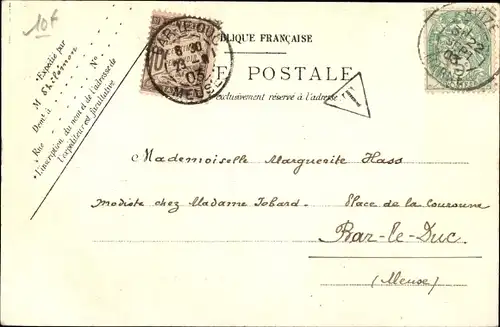 10F
BLIQUE FRANÇAISE
E POSTALE
exclusivement réservé à l'adresse
T
BAR-LE-DUC
8 30
05
MEUSE
Expédié par
M
Dem^t à N^o
Rue
L'inscription du nom et de l'adresse de
l'expéditeur est facultative
Mademoiselle Marguerite Hass
modiste chez Madame Jobard. Place de la Couronne
Bar-le-Duc.
(Meuse)